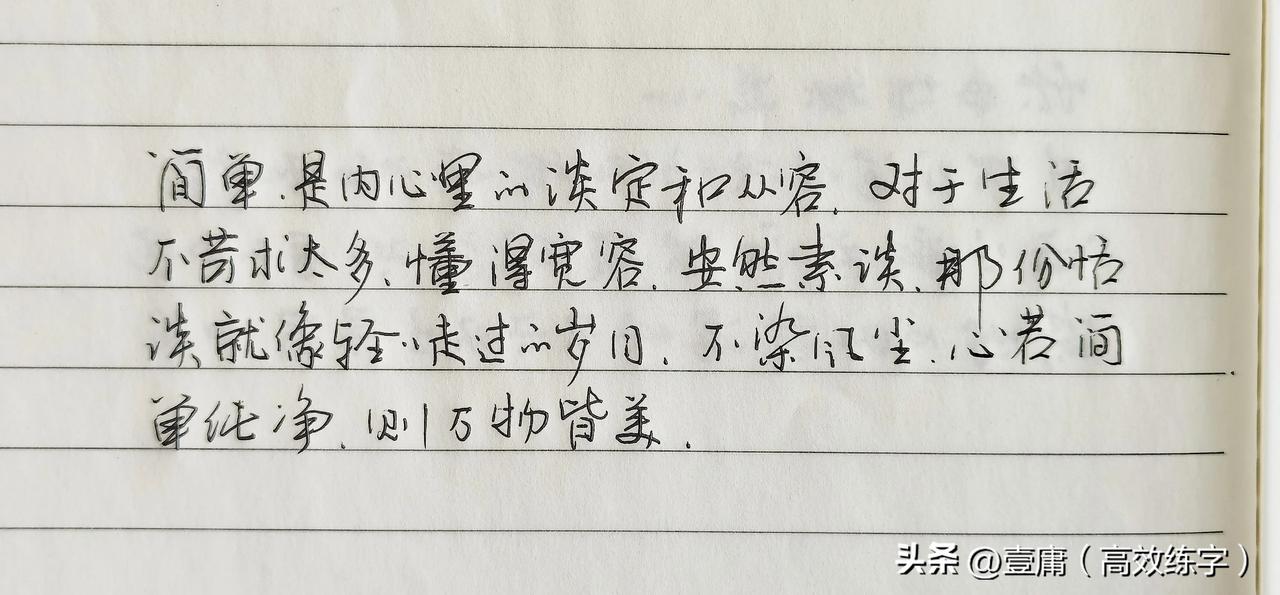 简单.是内心里的淡定和从容.对于生活
不苛求太多.懂得宽容.安然素淡.那份恬
淡就像轻轻走过的岁月.不染风尘.心若简
单纯净.则万物皆美.
头条 @壹庸（高效练字）